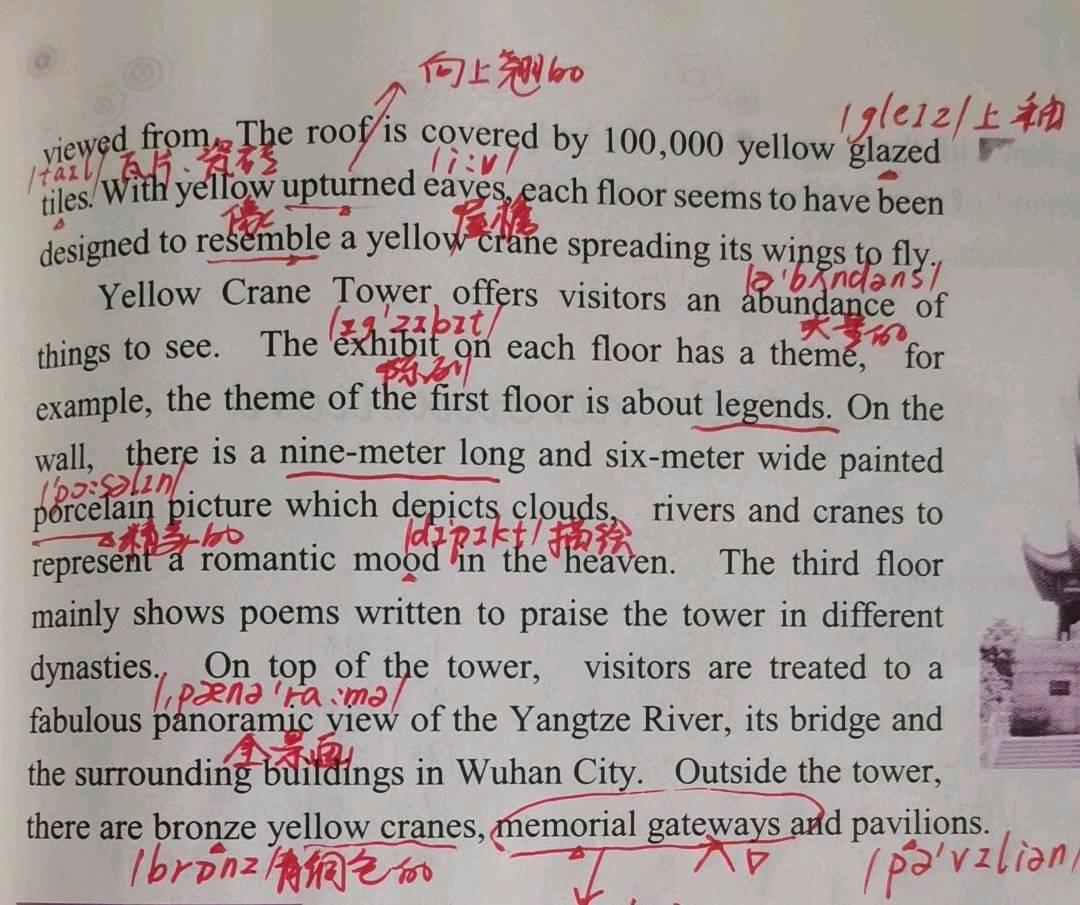 向上翘的
/gleɪz/上釉
viewed from. The roof is covered by 100,000 yellow glazed
/taɪl/ 瓦片、瓷砖 /i:v/
tiles. With yellow upturned eaves, each floor seems to have been
像 屋檐
designed to resemble a yellow crane spreading its wings to fly.
/ə'bʌndəns/
Yellow Crane Tower offers visitors an abundance of
/ɪg'zɪbɪt/ 大量的
things to see. The exhibit on each floor has a theme, for
陈列
example, the theme of the first floor is about legends. On the
wall, there is a nine-meter long and six-meter wide painted
/'pɔ:səlɪn/
porcelain picture which depicts clouds, rivers and cranes to
/dɪ'pɪkt/描绘
represent a romantic mood in the heaven. The third floor
mainly shows poems written to praise the tower in different
dynasties. On top of the tower, visitors are treated to a
/ˌpænə'ra:mə/
fabulous panoramic view of the Yangtze River, its bridge and
全景画
the surrounding buildings in Wuhan City. Outside the tower,
there are bronze yellow cranes, memorial gateways and pavilions.
/brɒnz/青铜色的 入口 /pə'vɪlɪən/